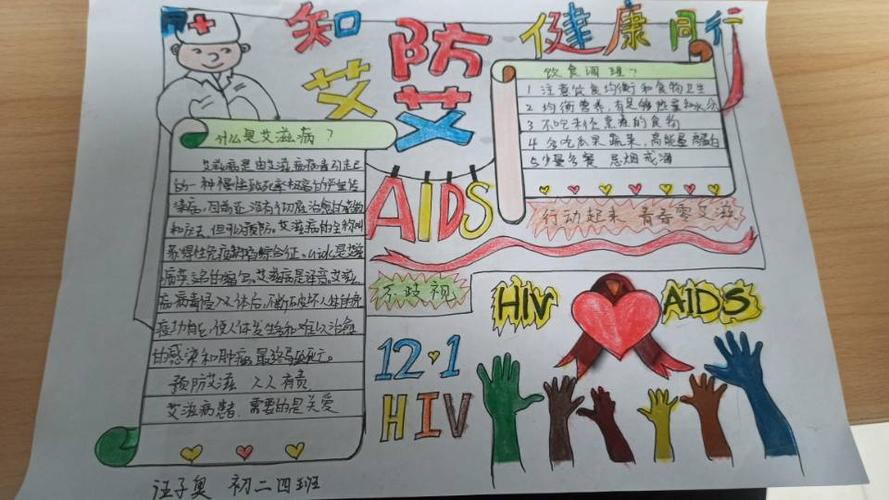 知艾防艾 健康同行
什么是艾滋病?
艾滋病是由艾滋病病毒引起
的一种慢性致死率极高的严重传
染症,目前还没有彻底治愈的药物
和方法,但可以预防。艾滋病的全称叫
获得性免疫缺陷综合征。
艾滋
病病毒侵入人体后,不断破坏人体的免
疫功能,使人体发生多种难以治愈
的感染和肿瘤,最终导致死亡。
预防艾滋 人人有责
艾滋病患者 需要的是关爱
饮食调理?
1 注意饮食均衡和食物卫生
2 均衡营养,有足够热量和水分
3 不吃未经煮熟的食物
4 多吃瓜果 蔬菜,高能量 高蛋白
5 少量多餐 忌烟戒酒
行动起来 青春零艾滋
AIDS
不歧视
12·1
HIV
HIV AIDS
汪子奥 初二四班